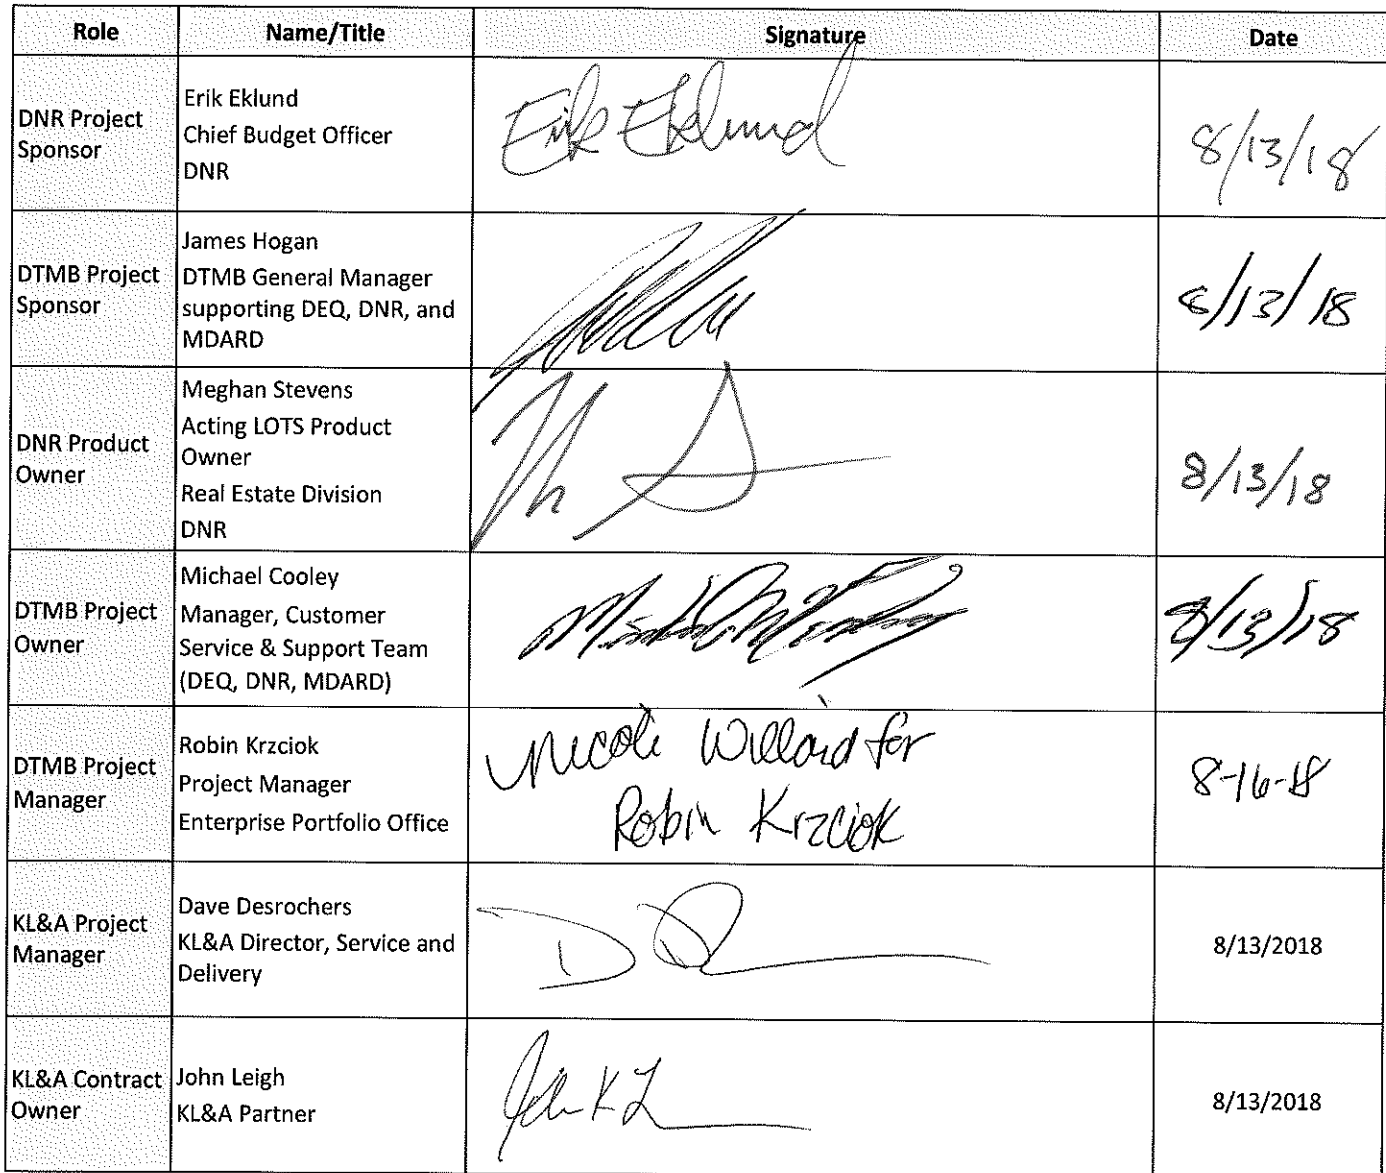 Role Name/Title Signature Date
DNR Project
Sponsor
Erik Eklund
Chief Budget Officer
DNR
Erik Eklund
8/13/18
DTMB Project
Sponsor
James Hogan
DTMB General Manager
supporting DEQ, DNR, and
MDARD
8/13/18
DNR Product
Owner
Meghan Stevens
Acting LOTS Product
Owner
Real Estate Division
DNR
8/13/18
DTMB Project
Owner
Michael Cooley
Manager, Customer
Service & Support Team
(DEQ, DNR, MDARD)
8/13/18
DTMB Project
Manager
Robin Krzciok
Project Manager
Enterprise Portfolio Office
Nicole Willard for
Robin Krzciok
8-16-18
KL&A Project
Manager
Dave Desrochers
KL&A Director, Service and
Delivery
8/13/2018
KL&A Contract
Owner
John Leigh
KL&A Partner
8/13/2018